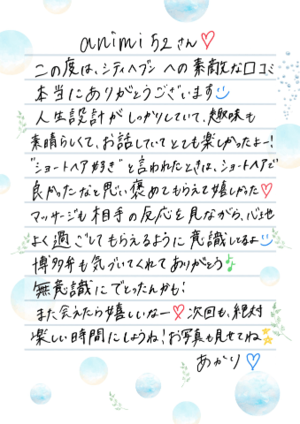 animi52さん♡
この度は、シティヘブン への素敵な口コミ
本当にありがとうございます☺
人生設計が しっかりしていて、趣味も
素晴らしくて、お話していてとても楽しかったよー!
"ショートヘア好き"と言われたときは、ショートヘアで
良かったなと思い、褒めてもらえて嬉しかった♡
マッサージも相手の反応を見ながら、心地
よく過ごしてもらえるように意識してるよ☺
博多弁も気づいてくれてありがとう♪
無意識にでとったんかも!
また会えたら嬉しいなー♡次回も、絶対
楽しい時間にしようね!お写真も見せてね☆
あかり♡